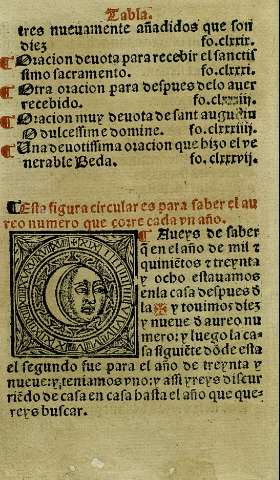 Tabla.
tres nueuamente añadidos que son
diez fo.clxxix.
¶ Oracion deuota para recebir el sanctis
simo sacramento. fo.clxxxi.
¶ Otra oracion para despues delo auer
recebido. fo.clxxxiij.
¶ Oracion muy deuota de sant augustin
O dulcissime domine. fo.clxxxiiij.
¶ Una deuotissima oracion que hizo el ve
nerable Beda. fo.clxxxvij.
¶ Esta figura circular es para saber el au
reo numero que corre cada vn año.
¶ Aueys de saber
q̃ en el año de mil ⁊
quiniẽtos ⁊ treynta
y ocho estauamos
en la casa despues ð
la ✠ y touimos diez
y nueue ð aureo nu
mero: y luego la ca
sa siguiẽte dõde esta
el segundo fue para el año de treynta y
nueue: y, teniamos vno: y assi yreys discur
riẽdo de casa en casa hasta el año que que-
reys buscar.